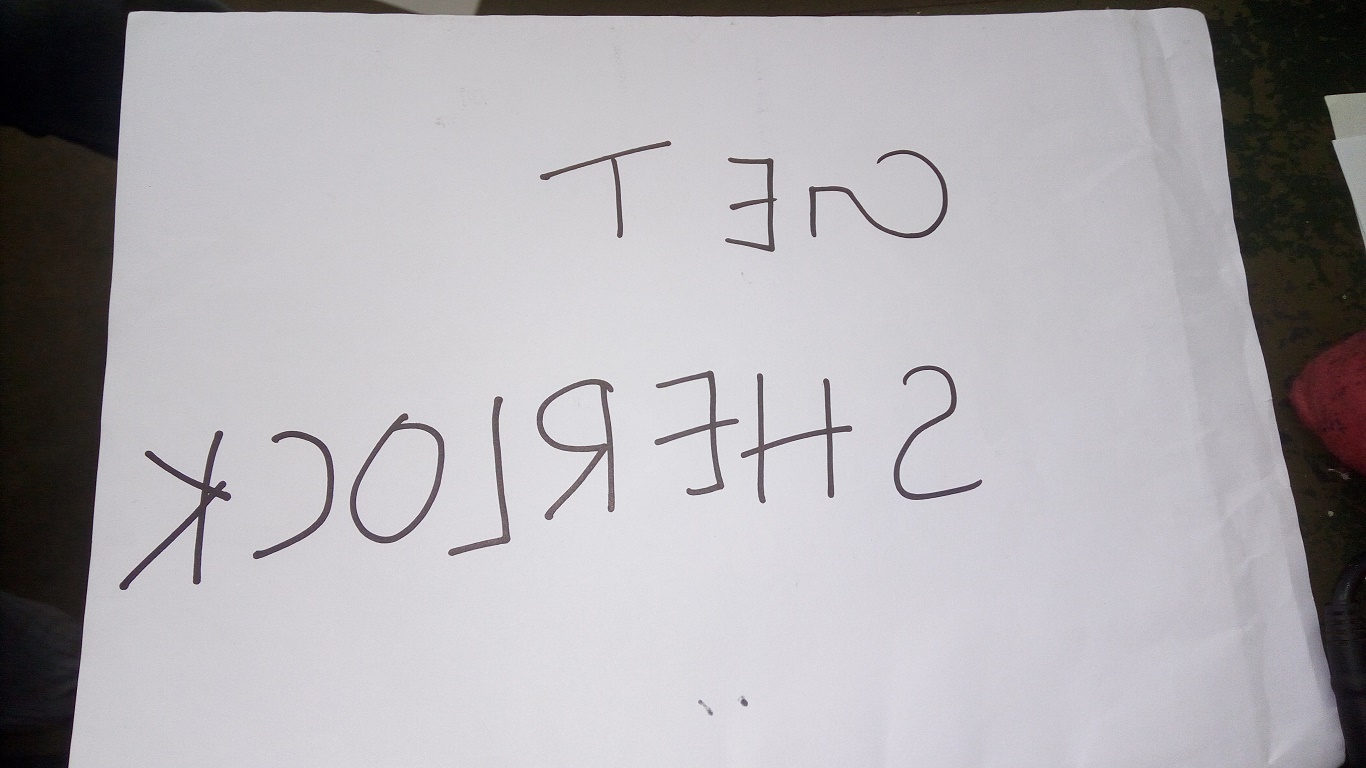 GET
SHERLOCK